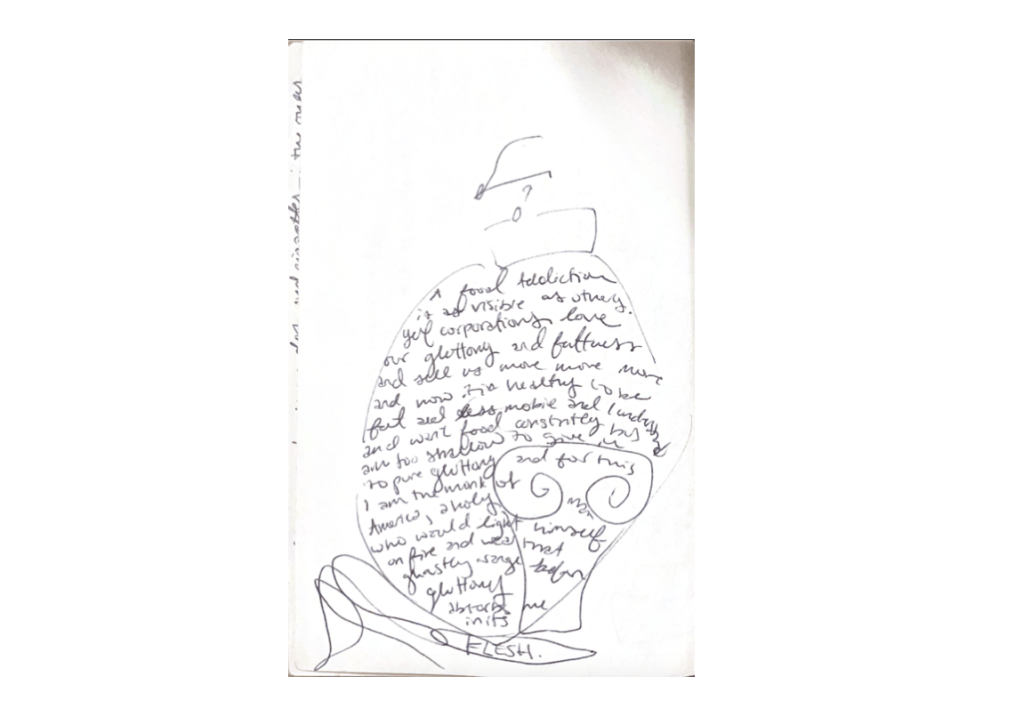 A food Addiction
is as visible as others.
yet corporations love
our gluttony and fattness
and sell us more more more
and now it is healthy to be
fat and less mobile and I
and want food constntly but
am too shallow to give in
to pure gluttony and for this
I am the monk of
America, a holy man
who would light himself
on fire and wear that
orange before
gluttony
absorbs me
in its
FLESH.